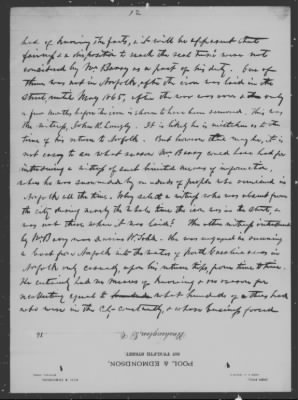 12
had of knowing the facts, & it will be apparent that
fairness & a disposition to reach the real truth were not
considered by Mr Barry as a part of his duty. One of
them was not in Norfolk, after the iron was laid in the
street, until May 1865, after the war was over & only
a few months before the iron is shown to have been removed. This was
the witness, John H. It is likely he is mistaken as to the
time of his return to Norfolk. But however that may be, it is
not easy to see what reason Mr Barry could have had for
introducing a witness of such limited means of information,
when he was surrounded by hundreds of people who remained in
Norfolk all the time. Why select a witness who was absent from
the city during nearly the whole time the iron was in the street, &
was not there when it was laid? The other witness introduced
by Mr Barry was W. He was engaged in running
a boat from Norfolk into the waters of North Carolina & was in
Norfolk only occasionally, upon his return trips, from time to time.
He certainly had no means of knowing & no reason for
recollecting equal to what hundreds of others had
who were in the City constantly, & whose business forced
Washington D. C. 18
POOL & EDMONDSON,
TWELFTH STREET.